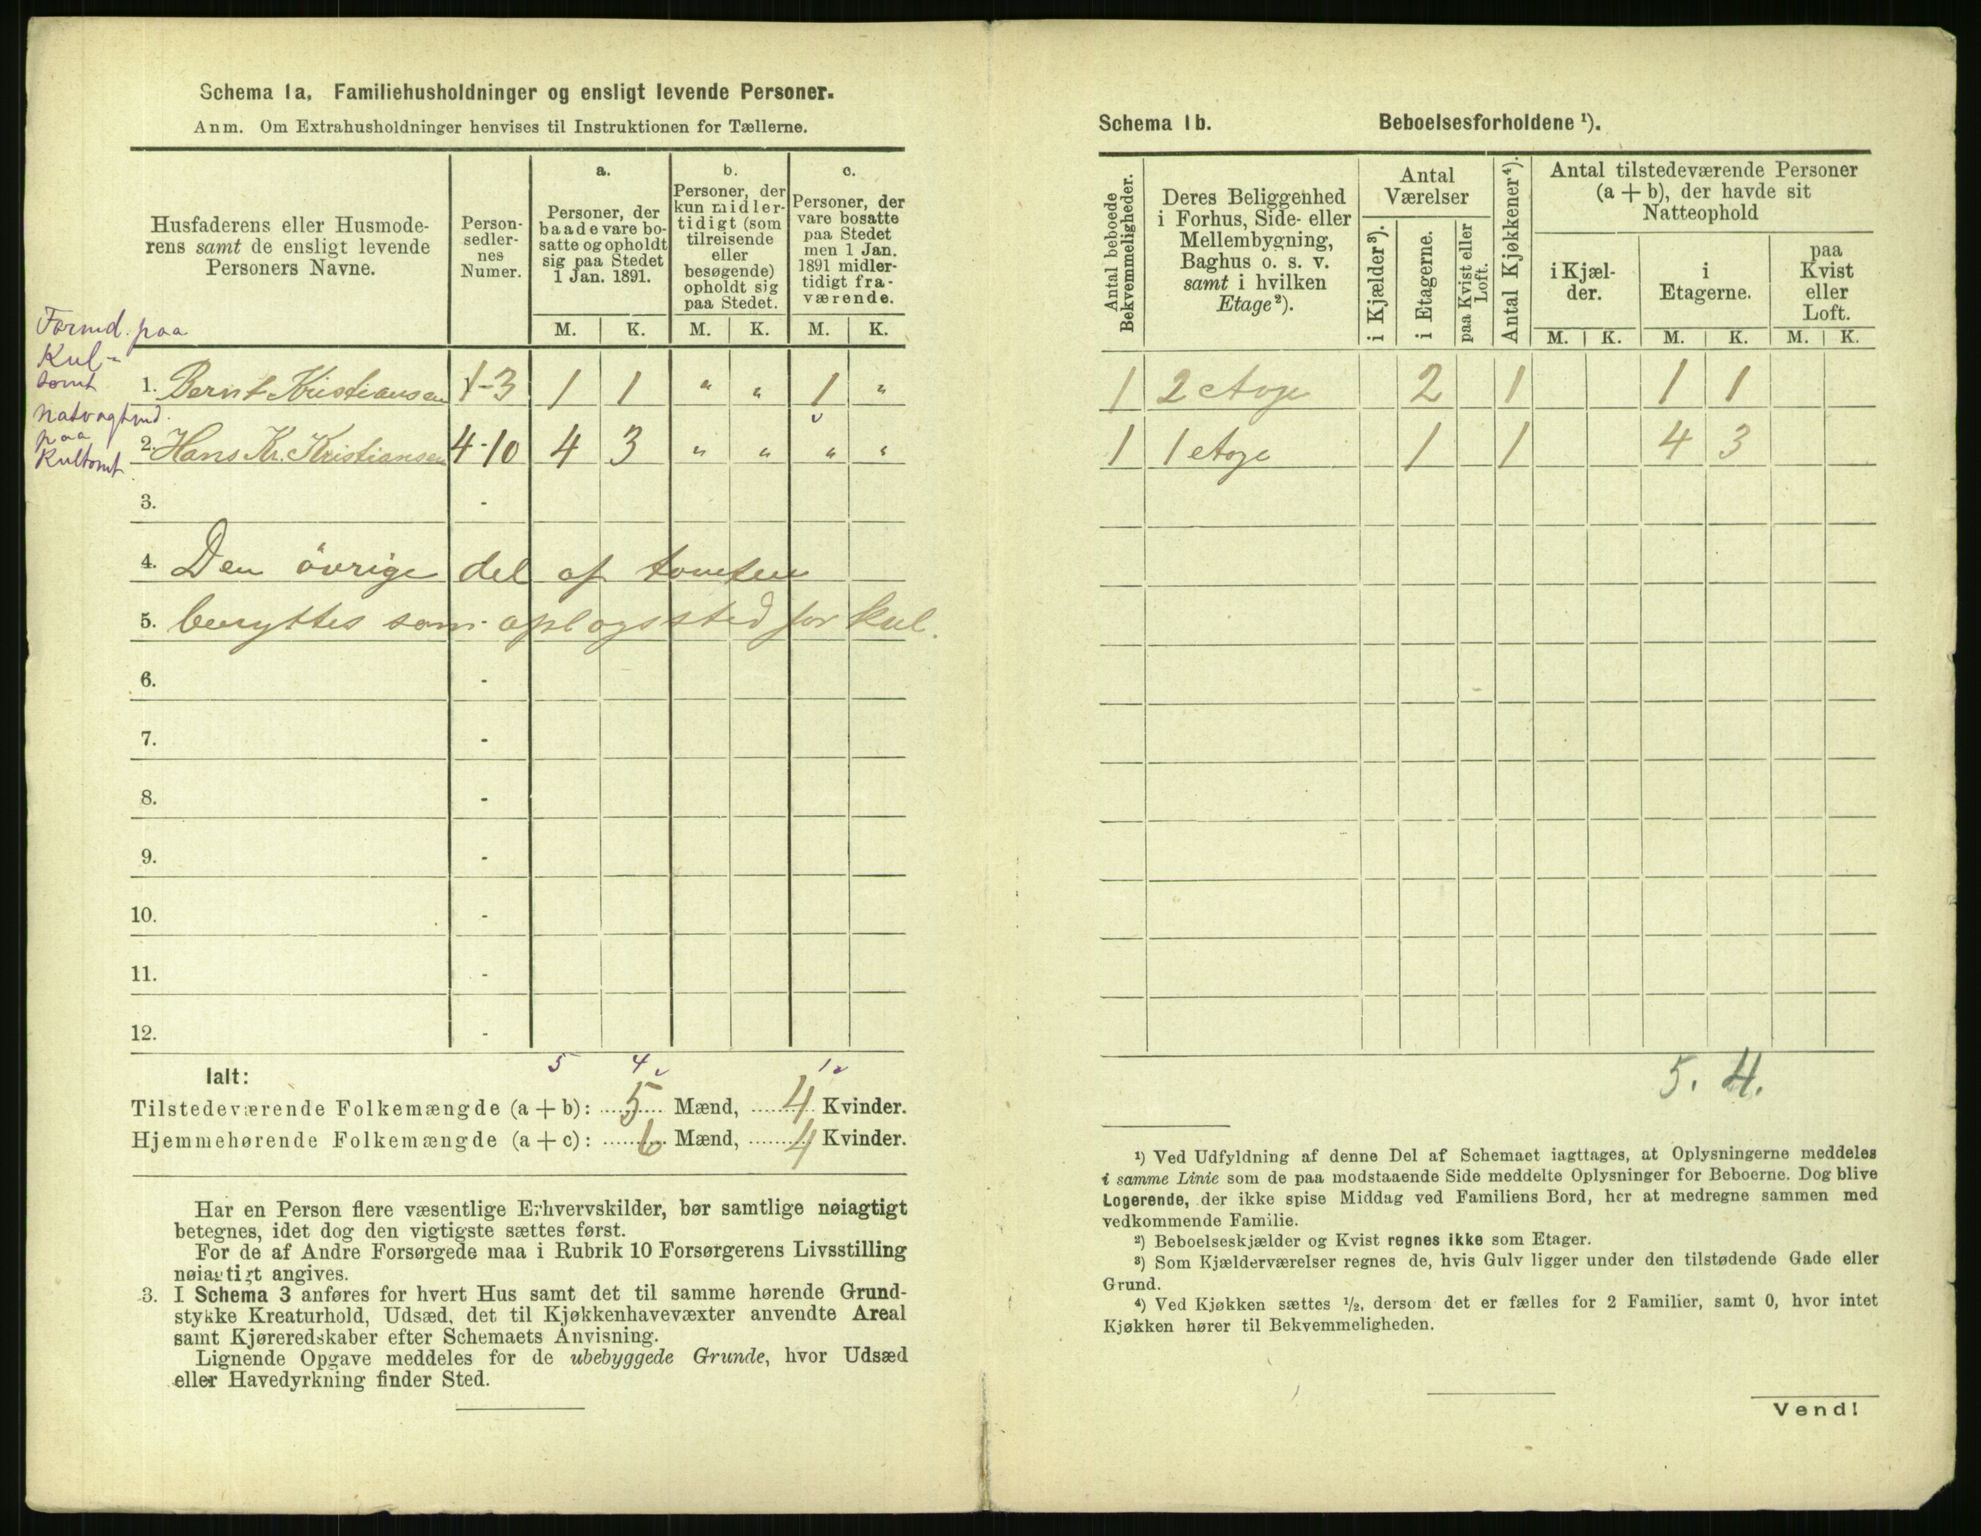 Schema 1a. Familiehusholdninger og ensligt levende Personer.
Anm. Om Extrahusholdninger henvises til Instruktionen for Tællerne.
Husfaderens eller Husmoderens samt de ensligt levende Personers Navne.
Personsedlernes Numer.
a.
Personer, der baade vare bosatte og opholdt sig paa Stedet 1 Jan. 1891.
b.
Personer, der kun midlertidigt (som tilreisende eller besøgende) opholdt sig paa Stedet.
c.
Personer, der vare bosatte paa Stedet men 1 Jan. 1891 midlertidigt fraværende.
M. K. M. K. M. K.
Formd. paa
Kul-
tomt
1. Bernt Kristiansen 1-3 1 1 " " 1 "
natvagtmd.
paa
Kultomt
2. Hans Kr. Kristiansen 4-10 4 3 " " " "
3. -
4. Den övrige del af tomten
5. benyttes som oplagssted for kul.
6. -
7. -
8. -
9. -
10. -
11. -
12. -
5 4 1
Ialt:
Tilstedeværende Folkemængde (a + b): 5 Mænd, 4 Kvinder.
Hjemmehørende Folkemængde (a + c): 6 Mænd, 4 Kvinder.
Har en Person flere væsentlige Erhvervskilder, bør samtlige nøiagtigt
betegnes, idet dog den vigtigste sættes først.
For de af Andre Forsørgede maa i Rubrik 10 Forsørgerens Livsstilling
nøiagtigt angives.
3. I Schema 3 anføres for hvert Hus samt det til samme hørende Grund-
stykke Kreaturhold, Udsæd, det til Kjøkkenhavevæxter anvendte Areal
samt Kjøreredskaber efter Schemaets Anvisning.
Lignende Opgave meddeles for de ubebyggede Grunde, hvor Udsæd
eller Havedyrkning finder Sted.
Schema 1b. Beboelsesforholdene ¹).
Antal beboede Bekvemmeligheder.
Deres Beliggenhed i Forhus, Side- eller Mellembygning, Baghus o. s. v. samt i hvilken Etage²).
Antal Værelser
i Kjælder³).
i Etagerne.
paa Kvist eller Loft.
Antal Kjøkkener⁴).
Antal tilstedeværende Personer (a + b), der havde sit Natteophold
i Kjælder.
i Etagerne.
paa Kvist eller Loft.
M. K. M. K. M. K.
1 2 etage 2 1 1 1
1 1 etage 1 1 4 3
5. 4.
¹) Ved Udfyldning af denne Del af Schemaet iagttages, at Oplysningerne meddeles
i samme Linie som de paa modstaaende Side meddelte Oplysninger for Beboerne. Dog blive
Logerende, der ikke spise Middag ved Familiens Bord, her at medregne sammen med
vedkommende Familie.
²) Beboelseskjælder og Kvist regnes ikke som Etager.
³) Som Kjælderværelser regnes de, hvis Gulv ligger under den tilstødende Gade eller
Grund.
⁴) Ved Kjøkken sættes ½, dersom det er fælles for 2 Familier, samt 0, hvor intet
Kjøkken hører til Bekvemmeligheden.
Vend!